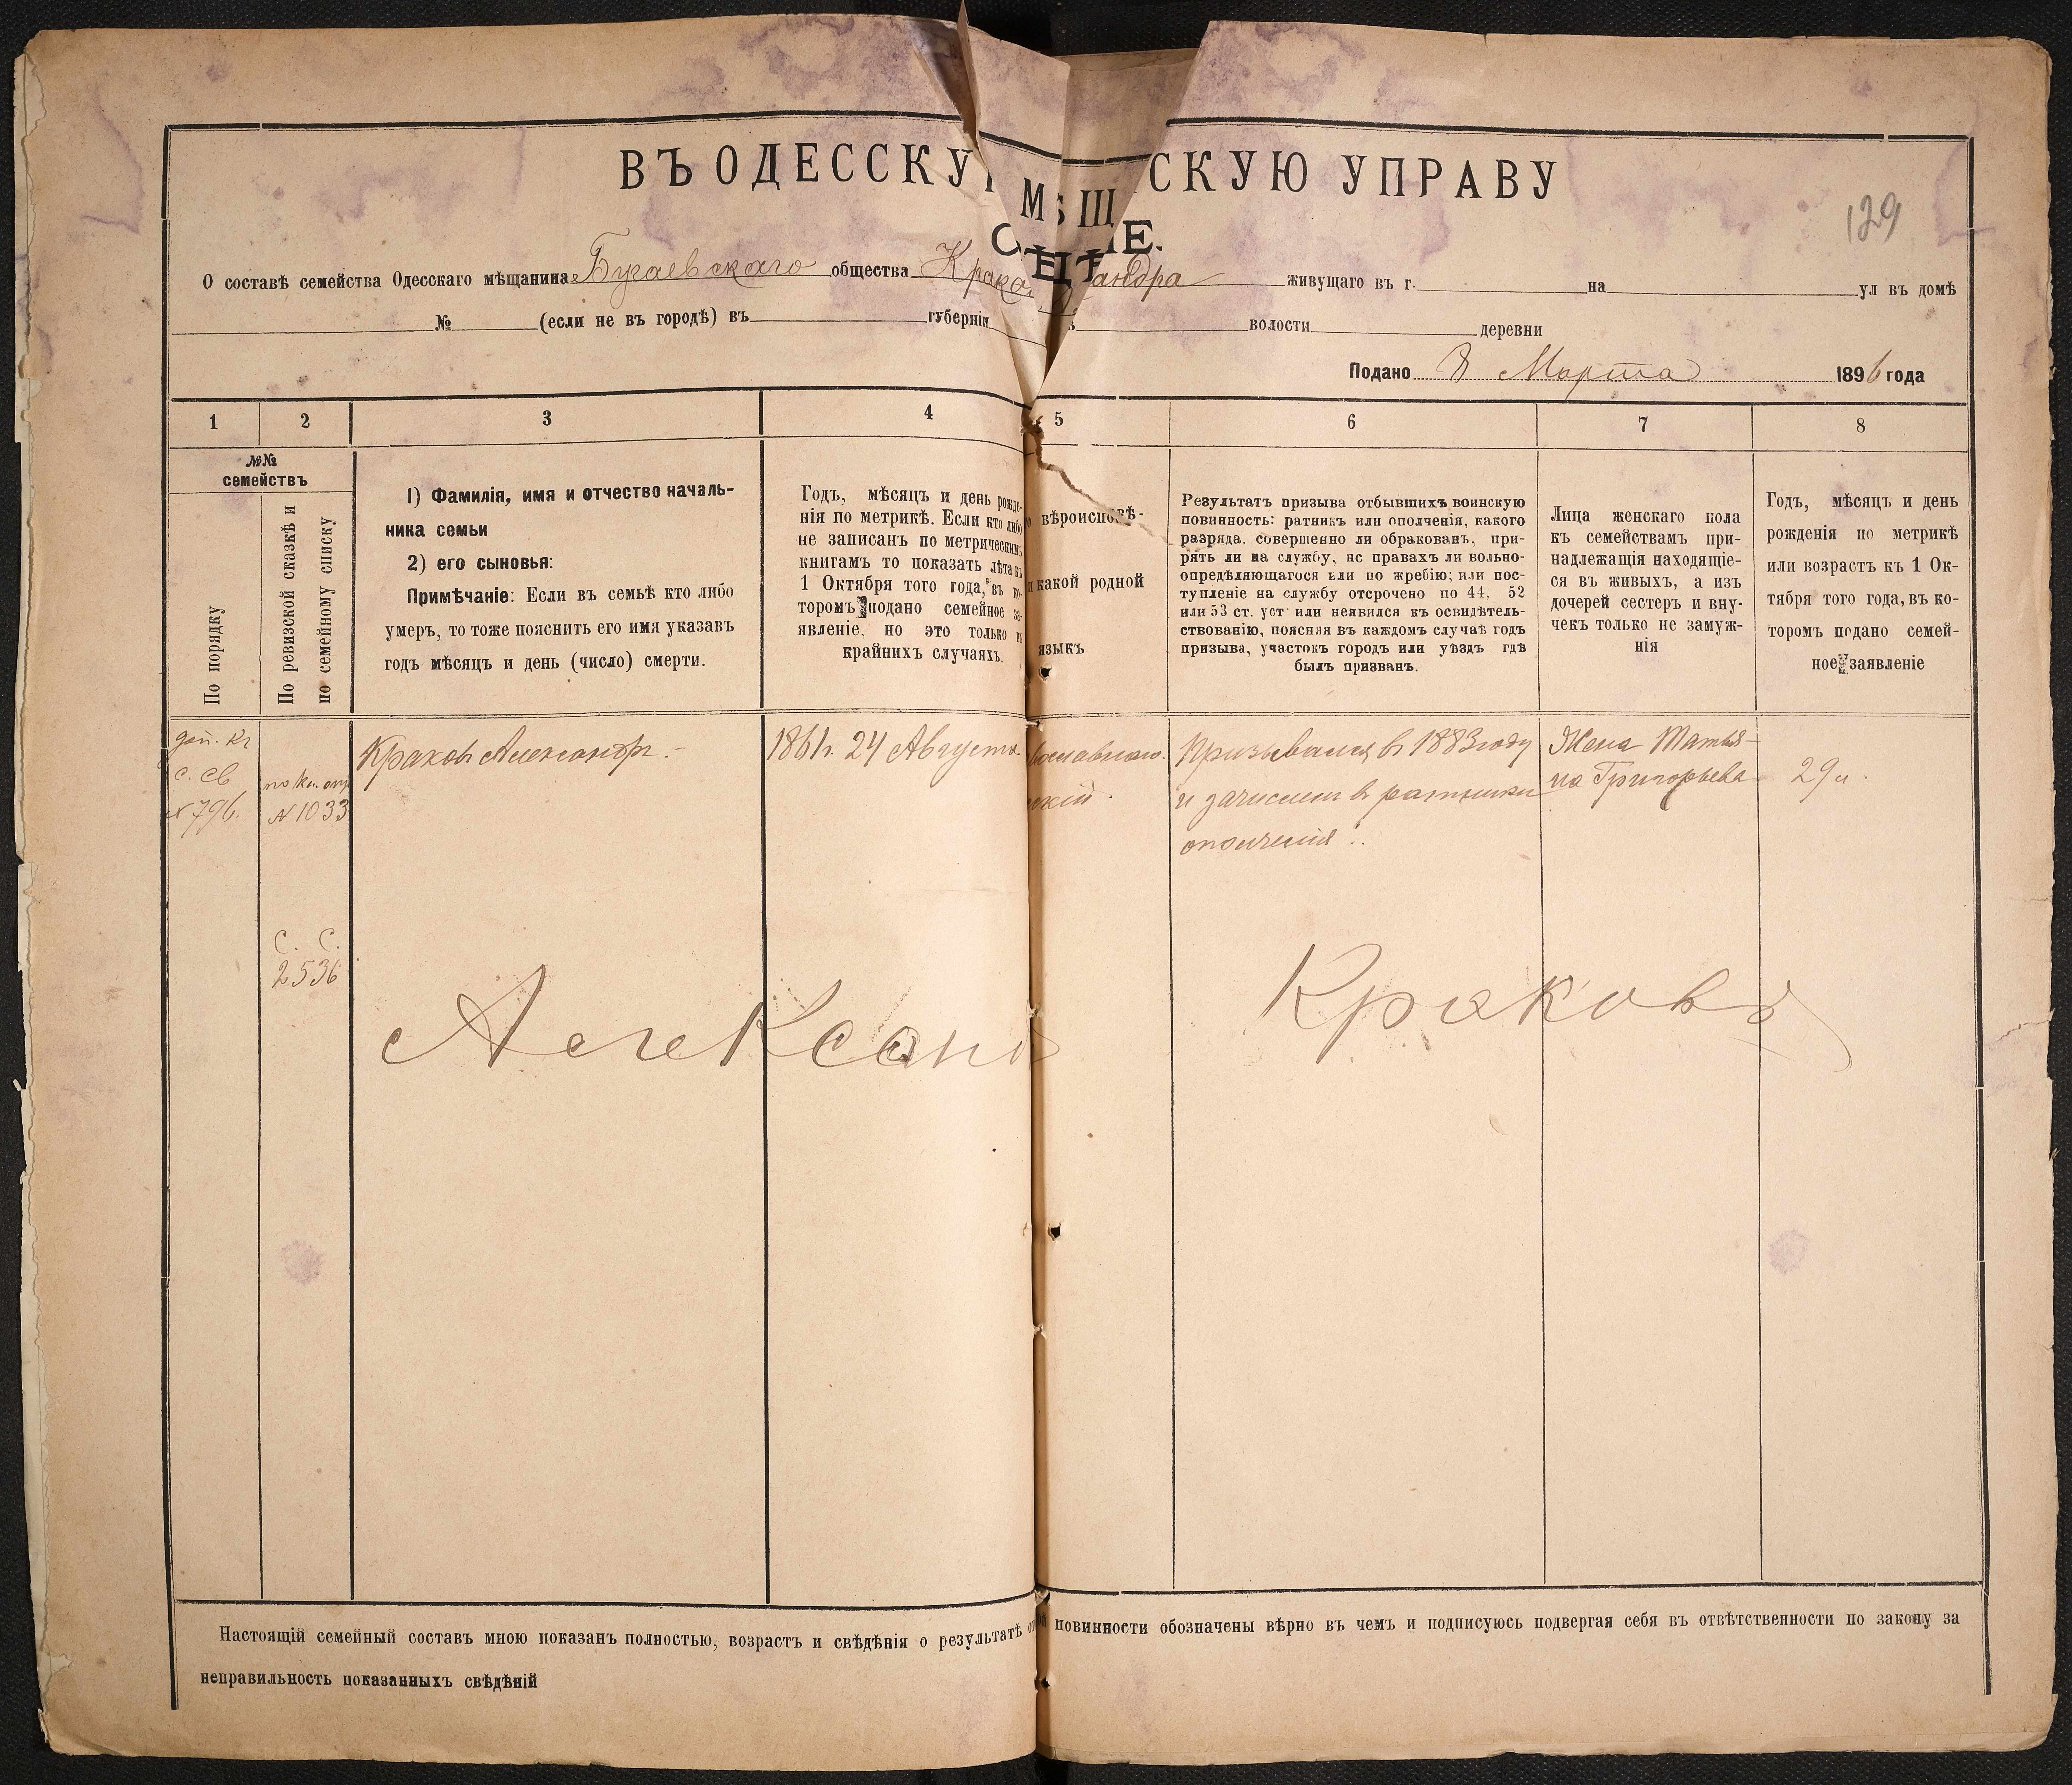 ВЪ ОДЕССКУ МѢЩ СКУЮ УПРАВУ
129
О составѣ семейства Одесскаго мѣщанина Бугаевскаго общества Крако андра живущаго въ г. на ул въ домѣ
№ (если не въ городѣ) въ губерніи волости деревни
Подано 8 Марта 1896 года
1 2 3 4 5 6 7 8
№№
семействъ
По порядку
По ревизской сказкѣ и
по семейному списку
1) Фамилія, имя и отчество началь-
ника семьи
2) его сыновья:
Примѣчаніе: Если въ семьѣ кто либо
умеръ, то тоже пояснить его имя указавъ
годъ мѣсяцъ и день (число) смерти.
Годъ, мѣсяцъ и день рожде-
нія по метрикѣ. Если кто либо
не записанъ по метрическимъ
книгамъ то показать лѣта къ
1 Октября того года, въ ко-
торомъ подано семейное за-
явленіе, но это только въ
крайнихъ случаяхъ.
вѣроисповѣ-
и какой родной
языкъ
Результатъ призыва отбывшихъ воинскую
повинность: ратникъ или ополченія, какого
разряда. совершенно ли обракованъ, при-
рятъ ли на службу, нс правахъ ли вольно-
опредѣляющагося или по жребію; или пос-
тупленіе на службу отсрочено по 44, 52
или 53 ст. уст или неявился къ освидѣтель-
ствованію, поясняя въ каждомъ случаѣ годъ
призыва, участокъ городъ или уѣздъ гдѣ
былъ призванъ.
Лица женскаго пола
къ семействамъ при-
надлежащія находящіе-
ся въ живыхъ, а изъ
дочерей сестеръ и вну-
чекъ только не замуж-
нія
Годъ, мѣсяцъ и день
рожденія по метрикѣ
или возрастъ къ 1 Ок-
тября того года, въ ко-
торомъ подано семей-
ное заявленіе
доп. къ
с. св
№ 796.
№ 1033
С. С.
2536
Краковъ Александръ.
1861г. 24 Августа
вославнаго.
скій.
Призывался въ 1883 году
и зачисленъ въ ратники
ополченія.
Жена Татья-
на Григорьева
29 л.
Александ
Краковъ
Настоящій семейный составъ мною показанъ полностью, возрастъ и свѣдѣнія о результатѣ повинности обозначены вѣрно въ чемъ и подписуюсь подвергая себя въ отвѣтственности по закону за
неправильность показанныхъ свѣдѣній